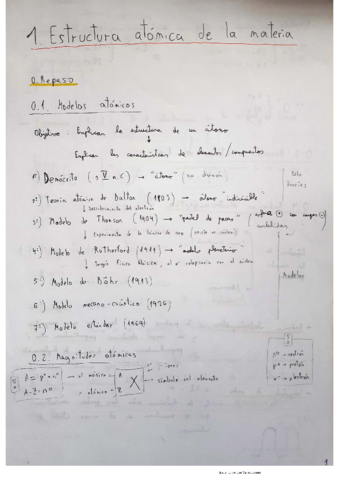 1. Estructura atómica de la materia
0. Repaso
0.1. Modelos atómicos
Objetivo: Explicar la estructura de un átomo
Explicar las características de elementos/compuestos
1º) Demócrito (s V a.C) → "átomo" (no división)
2º) Teoría atómica de Dalton (1803) → átomo "indivisible"
Solo teorías
↓ Descubrimiento del electrón
3º) Modelo de Thomson (1904) → "pastel de pasas" (esfera (+) con cargas (-)
↓ Experimento de la lámina de oro
4º) Modelo de Rutherford (1911) → "modelo planetario"
↓ Según Física clásica, el e⁻ colapsaría con el núcleo
Modelos
5º) Modelo de Böhr (1913)
6º) Modelo mecano-cuántico (1926)
7º) Modelo estándar (1964)
0.2. Magnitudes atómicas
n⁰ = neutrón
p⁺ = protón
e⁻ = electrón
A = p⁺ + n⁰
A - Z = n⁰
nº másico → A
nº atómico ← Z
X → símbolo del elemento
1